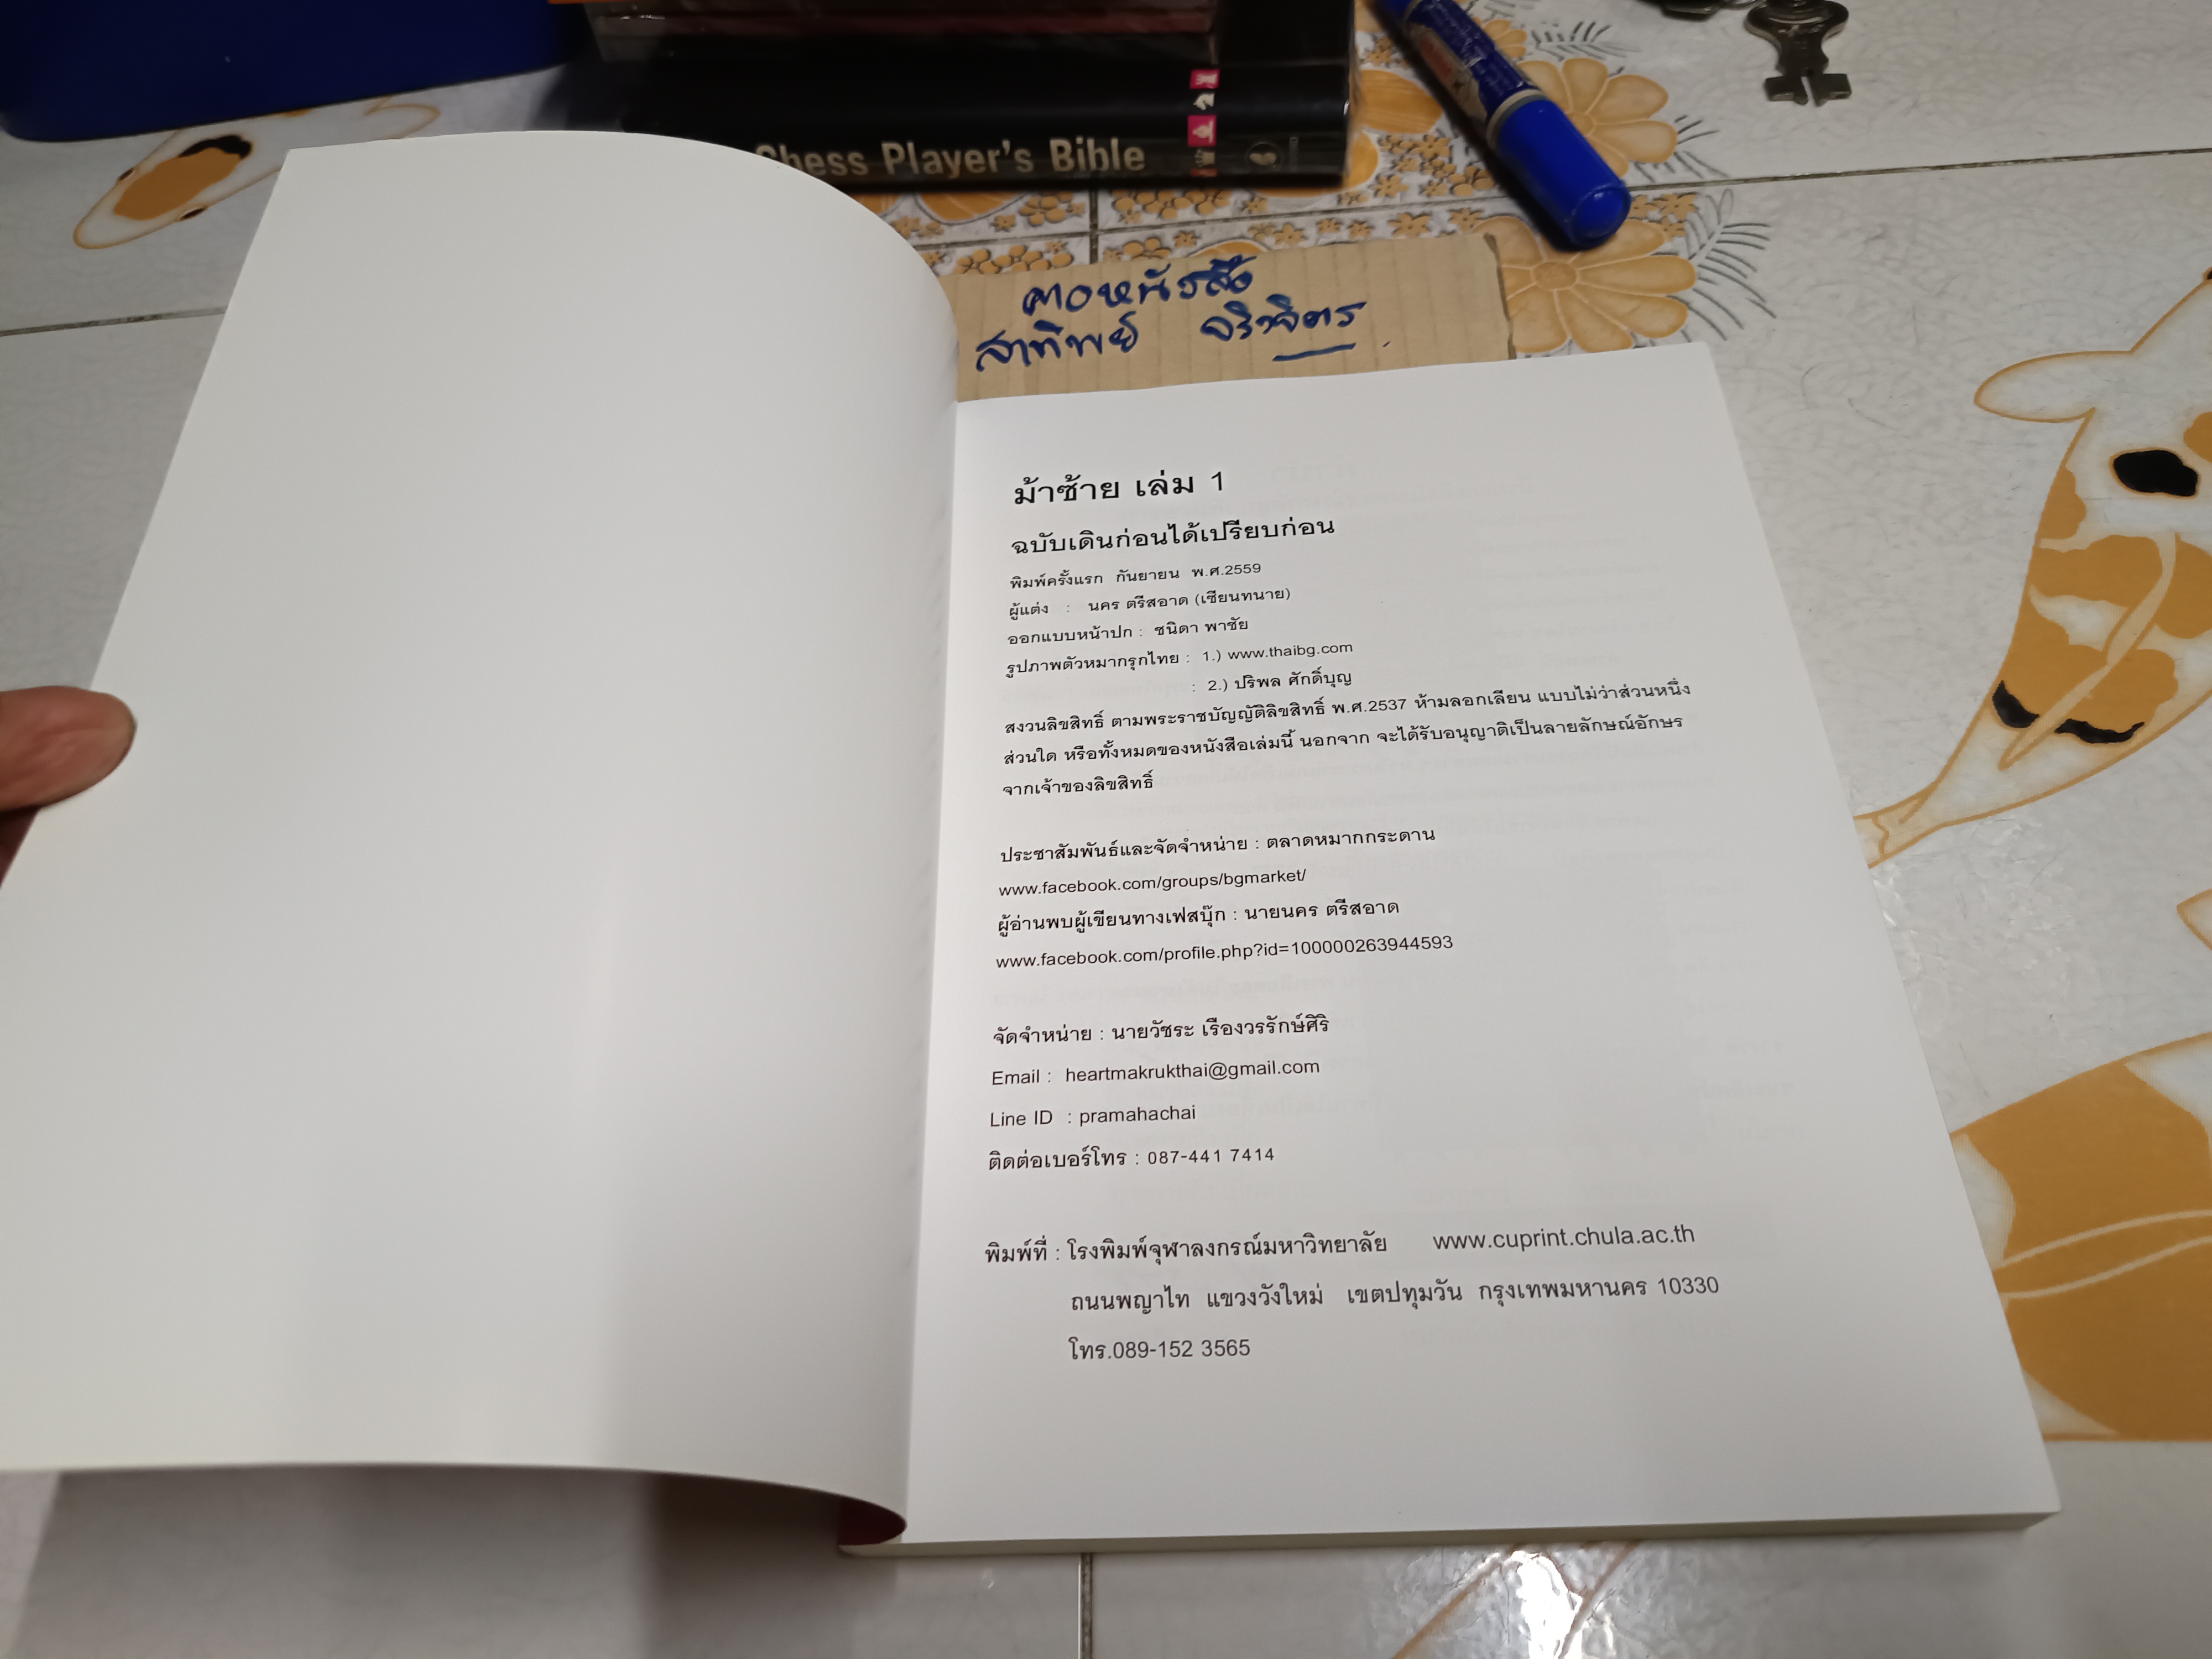 Chess Player's Bible
คอหนังสือ
สาทิพย์
ม้าซ้าย เล่ม 1
ฉบับเดินก่อนได้เปรียบก่อน
พิมพ์ครั้งแรก กันยายน พ.ศ.2559
ผู้แต่ง : นคร ตรีสอาด (เซียนทนาย)
ออกแบบหน้าปก : ชนิดา พาชัย
รูปภาพตัวหมากรุกไทย : 1.) www.thaibg.com
: 2.) ปริพล ศักดิ์บุญ
สงวนลิขสิทธิ์ ตามพระราชบัญญัติลิขสิทธิ์ พ.ศ.2537 ห้ามลอกเลียน แบบไม่ว่าส่วนหนึ่ง
ส่วนใด หรือทั้งหมดของหนังสือเล่มนี้ นอกจาก จะได้รับอนุญาติเป็นลายลักษณ์อักษร
จากเจ้าของลิขสิทธิ์
ประชาสัมพันธ์และจัดจำหน่าย : ตลาดหมากกระดาน
www.facebook.com/groups/bgmarket/
ผู้อ่านพบผู้เขียนทางเฟสบุ๊ก : นายนคร ตรีสอาด
www.facebook.com/profile.php?id=100000263944593
จัดจำหน่าย : นายวัชระ เรืองวรรักษ์ศิริ
Email : heartmakrukthai@gmail.com
Line ID : pramahachai
ติดต่อเบอร์โทร : 087-441 7414
พิมพ์ที่ : โรงพิมพ์จุฬาลงกรณ์มหาวิทยาลัย www.cuprint.chula.ac.th
ถนนพญาไท แขวงวังใหม่ เขตปทุมวัน กรุงเทพมหานคร 10330
โทร.089-152 3565